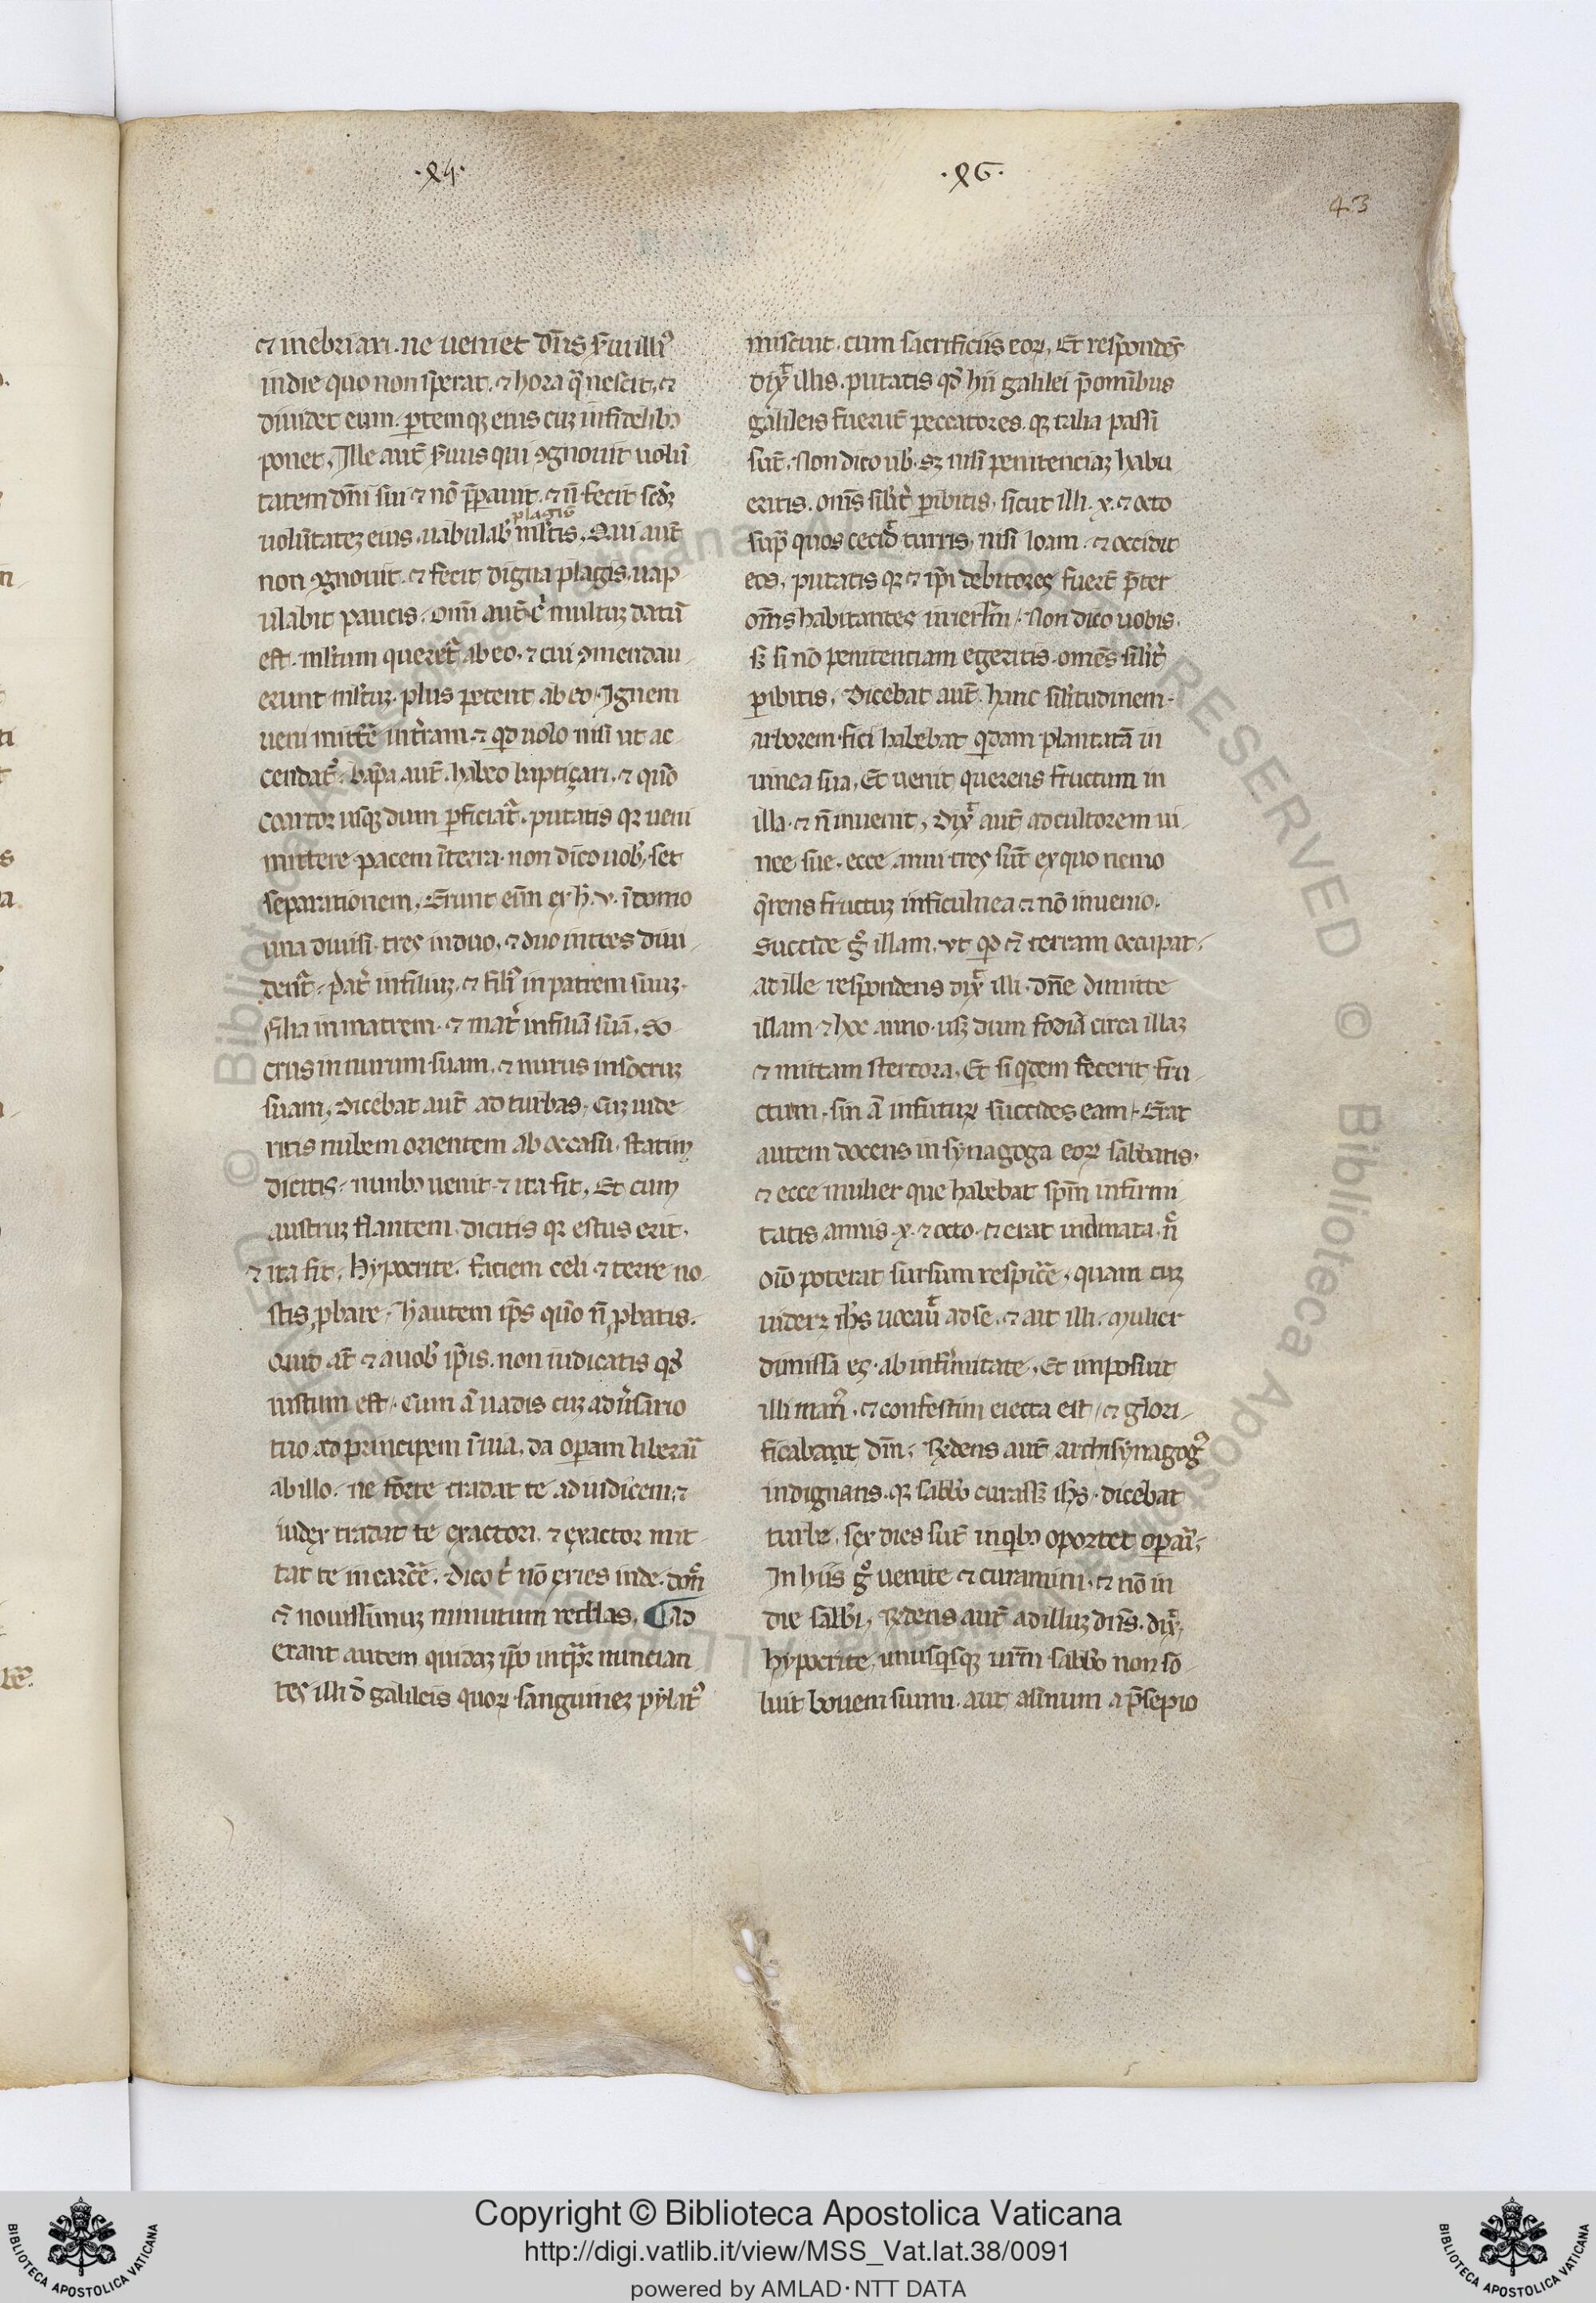 ·X4·
·X6·
43
⁊ inebriari. ne veniet dn̄s s̾ui illiꝰ
in die quo non sperat. ⁊ hora qͣ nescit. ⁊
diuidet eum. ꝑtemqꝫ eius cuꝫ infidelibꝫ
ponet. Ille aut̄ s̾uus qui ꝯgnouit volū
tatem dn̄i sui ⁊ nō p̄parauit. ⁊ n̄ fecit scd̄ꝫ
plagis
volūtateꝫ eius. uabulab̾ ml̾tis. Qui aut̄
non ꝯgnouit. ⁊ fecit digna plagis. uap
ulabit paucis. Om̄i aut̄ cͥ multuꝫ datū
est. mltum queret̾ ab eo. ⁊ cui ꝯmendau
erunt ml̾tuꝫ. plus petent ab eo. Ignem
veni mitt̾e in t̾ram. ⁊ qͥd uolo nisi ut ac
cendat̾. bap̄ma aut̄. habeo baptiçari. ⁊ quō
coartor usqꝫ dum ꝑficiat̾. putatis qꝛ veni
mittere pacem ī terra. non dico uob̾. set
separationem. Erunt eī̄m ex h̾. v. ī domo
una diuisi. tres in duo. ⁊ duo in tres diui
dent̾. pat̾ in filiuꝫ. ⁊ filiꝰ in patrem suuꝫ.
filia in matrem. ⁊ mat̾ in filiā suā. so
crus in nurum suam. ⁊ nurus in socruꝫ
suam. Dicebat aut̄ ad turbas. Cuꝫ uide
ritis nubem orientem ab occasu. statim
dicitis. nimbꝫ uenit. ⁊ ita fit. Et cum
austruꝫ flantem. dicitis qꝛ estus erit.
⁊ ita fit. Hypocrite. faciem celi ⁊ terre no
stis ꝓbare. h̾ autem tp̄s quō n̄ ꝓbatis.
Quid at̄ ⁊ a uob̾ ip̄is. non iudicatis qd̾
iustum est. Cum aͣ uadis cuꝫ adu̾sario
tuo ad principem ī uia. da oꝑam liberaͥ
ab illo. ne forte tradat te ad iudicem. ⁊
iudex tradat te exactori. ⁊ exactor mit
tat te in carc̾e. Dico tͥ nō exies inde. don̾
⁊ nouissimuꝫ minutum reddas. ¶ Ad
erant autem quidaꝫ ip̄o in tp̄r̄ nuncian
tes illi d̾ galileis quoꝝ sanguineꝫ pylatꝰ
miscuit. cum sacrificiis eoꝝ. Et respondēs
dix̾ illis. putatis qd̾ hii galilei p̄ omībus
galileis fuerūt peccatores. qꝛ talia passi
sūt. Non dico uob̾. sꝫ nisi penitenciaꝫ habu
eritis. om̄s silit̾ ꝑibitis. sicut illi. x. ⁊ octo
sup̾ quos cecid̾ turris. nisi loam. ⁊ occidit
eos. putatis qꝛ ⁊ ip̄i debitores fuer̄t p̄ter
om̄s habitantes in ierl̄m. Non dico uobis.
sꝫ si nō penitenciam egeritis. omēs silit̾
ꝑibitis. Dicebat aut̄. hanc sil̾itudinem.
arborem fici habebat qͥdam plantatā in
uinea sua. Et venit querens fructum in
illa. ⁊ n̄ inuenit. Dix̾ aut̄ ad cultorem ui
nee sue. ecce anni tres sūt ex quo uenio
qͣrens fructuꝫ in ficulnea ⁊ nō inuenio.
Succide gͦ illam. ut qͥd ⁊ terram occupat.
at ille respondens dix̾ illi. Dn̄e dimitte
illam ⁊ hoc anno. usqꝫ dum fodiā circa illaꝫ
⁊ mittam stercora. Et si qͥdem fecerit fru
ctum. sin aͣ in futuꝝ succides eam. Erat
autem docens in synagoga eoꝝ sabbatis.
⁊ ecce mulier que habebat sp̄m infirmi
tatis annis. x. ⁊ octo. ⁊ erat inclinata. n̄
oīo poterat sursum respic̾e. quam cuꝫ
uideꝫ ih̄s uocau̾ ad se. ⁊ ait illi. Mulier
dimissa es. ab infirmitate. Et imposuit
illi man̾. ⁊ confestim erecta est. ⁊ glori
ficabant dm̄. R̾dens aut̄ archisynagogꝰ
indignatis. qꝛ sabb̾o curassꝫ ih̄s. dicebat
turbe. sex dies sūt in qͥbꝫ oportet oꝑari.
In hiis gͦ venite ⁊ curamini. ⁊ nō in
die sabb̾i. R̾dens aut̄ ad illuꝫ dn̄s. dix̾.
hypocrite. unusqͥsqꝫ ur̄m sabb̾o non so
luit bouem suum. aut asinum a p̄sepio
Copyright © Biblioteca Apostolica Vaticana
http://digi.vatlib.it/view/MSS_Vat.lat.38/0091
powered by AMLAD·NTT DATA
BIBLIOTECA APOSTOLICA VATICANA
BIBLIOTECA APOSTOLICA VATICANA